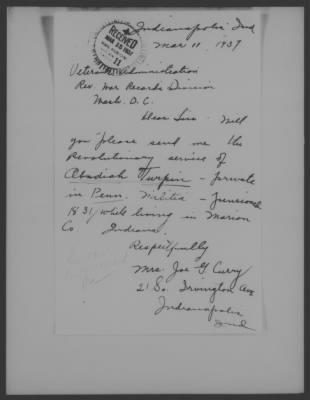 Indianapolis Ind
Mar 11, 1937
RECEIVED
MAR 13 1937
11
Veterans Administration
Rev. War Records Division
Wash. D.C.
Dear Sirs - Will
you please send me the
Revolutionary service of
Obadiah Turpin - private
in Penn. Militia - pensioned
1831/ while living in Marion
Co Indiana.
Respectfully
Mrs. Joe G. Curry
21 So. Irvington Ave
Indianapolis
Ind